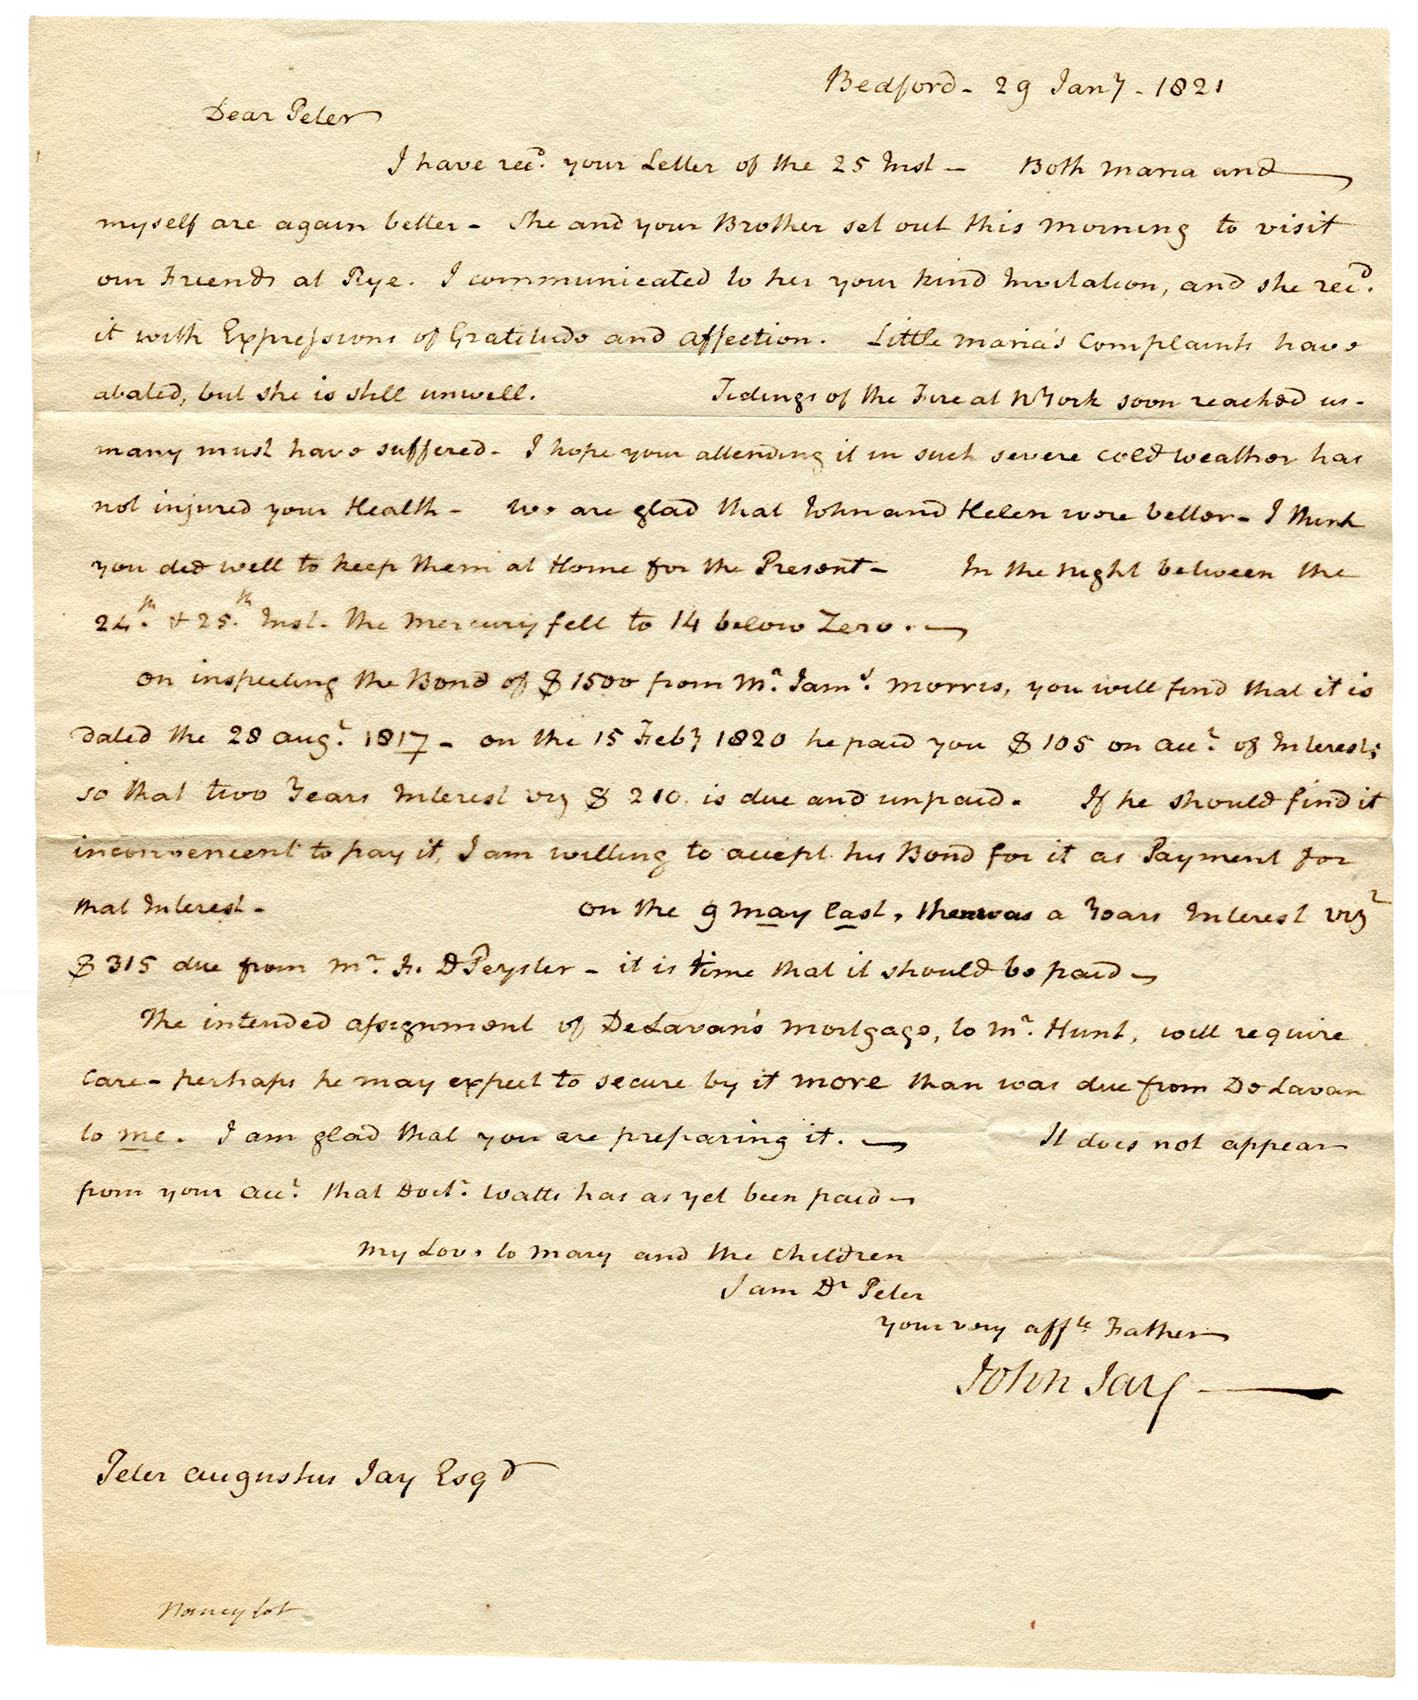 Bedford - 29 Jany - 1821
Dear Peter
I have recd. your Letter of the 25 Inst - Both Maria and
myself are again better - She and your Brother set out this Morning to visit
our Friends at Rye. I communicated to her your kind Invitation, and she recd.
it with Expressions of Gratitude and affection. Little Maria's Complaints have
abated, but she is still unwell. Tidings of the Fire at NYork soon reached us -
many must have suffered - I hope your attending it in such severe cold weather has
not injured your Health - We are glad that John and Helen were better - I think
you did well to keep them at Home for the Present - In the night between the
24th. & 25th. Inst. the Mercury fell to 14 below Zero. —
On inspecting the Bond of $1500 from Mr. Jams. Morris, you will find that it is
dated the 28 augt. 1817 - on the 15 Feby 1820 he paid you $ 105 on acct. of Interest;
so that two Years Interest viz $ 210. is due and unpaid. If he should find it
inconvenient to pay it, I am willing to accept his Bond for it as Payment for
that Interest - On the 9 May last, there was a Years Interest vizt
$ 315 due from Mr. F. D Peyster - it is time that it should be paid —
The intended assignment of DeLavan's mortgage, to Mr. Hunt, will require
care - perhaps he may expect to secure by it more than was due from DeLavan
to me. I am glad that you are preparing it. — It does not appear
from your acct. that Doctr. Watts has as yet been paid —
My Love to Mary and the children
I am Dr Peter
your very affte. Father
John Jay —
Peter Augustus Jay Esqr